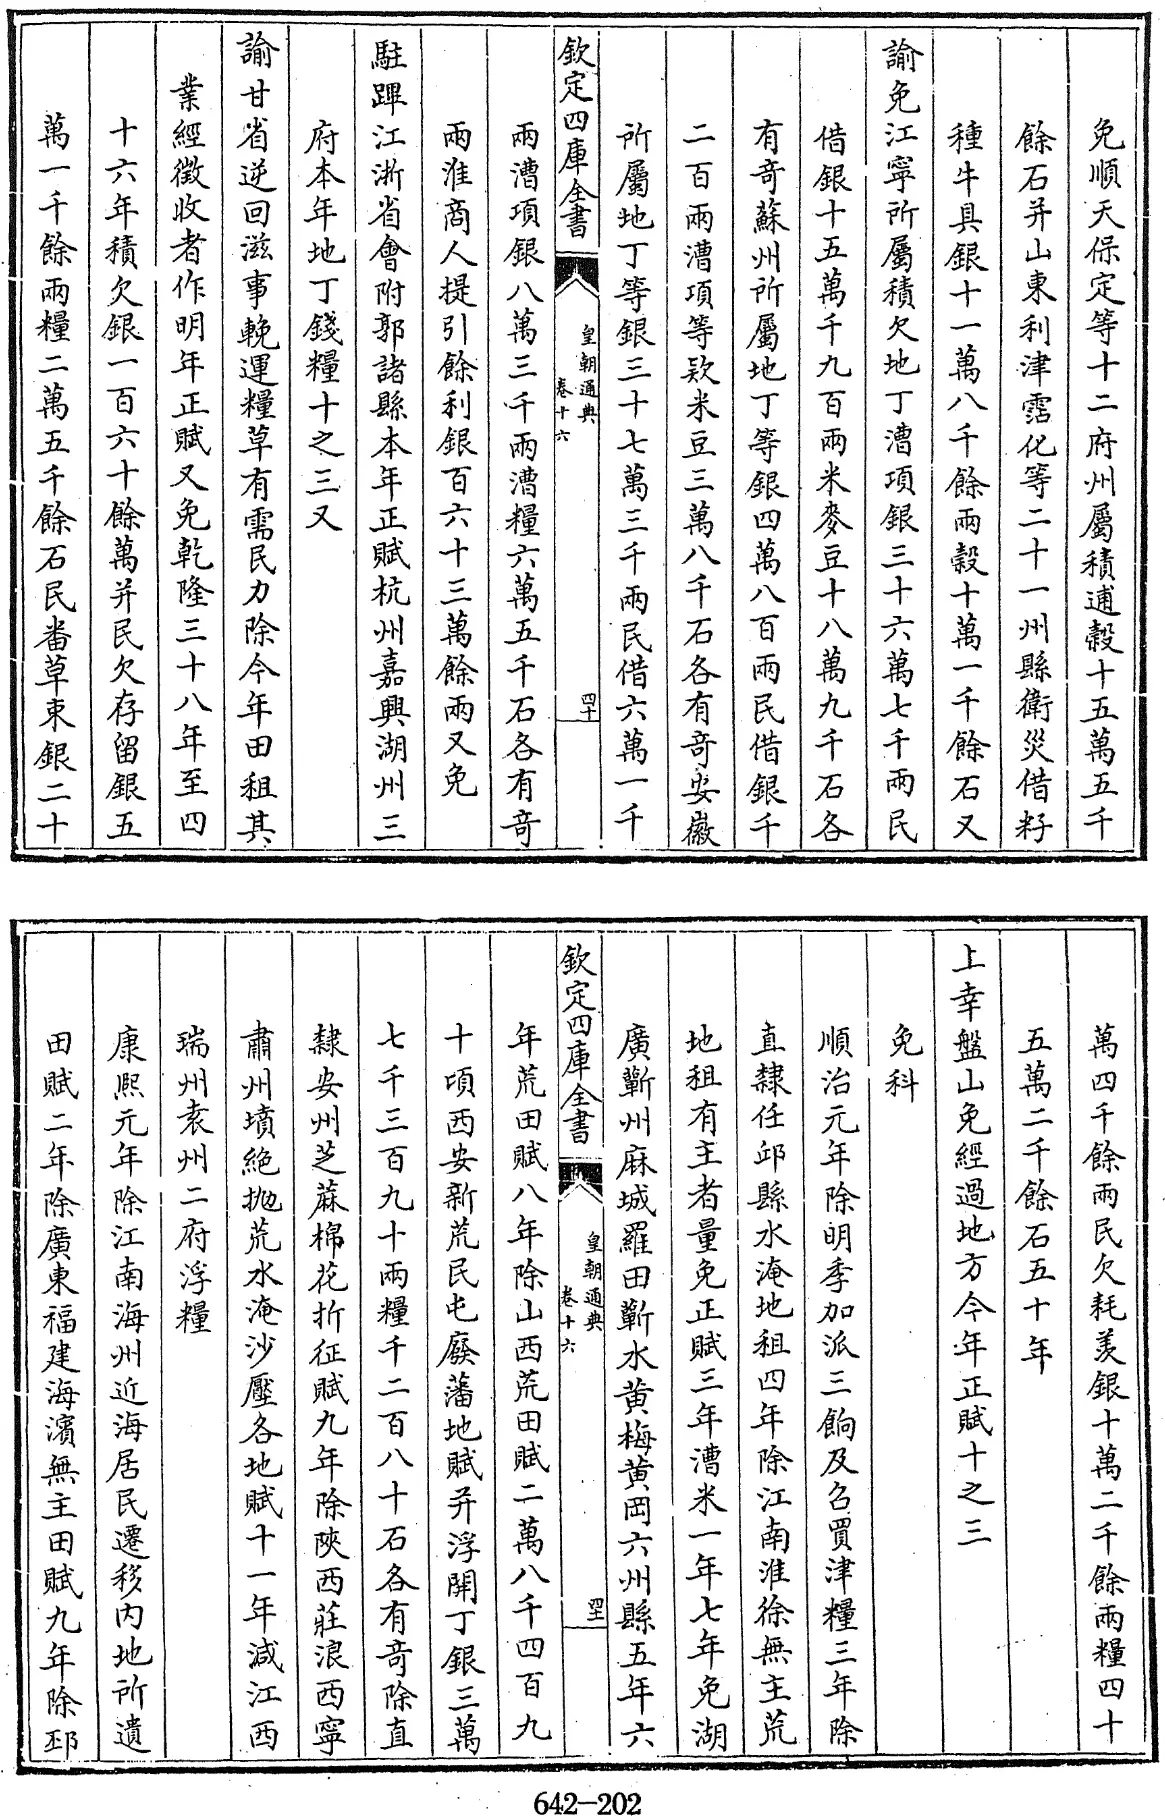 免順天保定等十二府州屬積逋穀十五萬五千
餘石并山東利津霑化等二十一州縣衛災借籽
種牛具銀十一萬八千餘兩穀十萬一千餘石又
諭免江寧所屬積欠地丁漕項銀三十六萬七千兩民
借銀十五萬千九百兩米麥豆十八萬九千石各
有奇蘇州所屬地丁等銀四萬八百兩民借銀千
二百兩漕項等欵米豆三萬八千石各有奇安徽
所屬地丁等銀三十七萬三千兩民借六萬一千
欽定四庫全書
皇朝通典
卷十六
四十
兩漕項銀八萬三千兩漕糧六萬五千石各有奇
兩淮商人提引餘利銀百六十三萬餘兩又免
駐蹕江浙省會附郭諸縣本年正賦杭州嘉興湖州三
府本年地丁錢糧十之三又
諭甘省逆回滋事輓運糧草有需民力除今年田租其
業經徵收者作明年正賦又免乾隆三十八年至四
十六年積欠銀一百六十餘萬并民欠存留銀五
萬一千餘兩糧二萬五千餘石民畨草束銀二十
萬四千餘兩民欠耗羡銀十萬二千餘兩糧四十
五萬二千餘石五十年
上幸盤山免經過地方今年正賦十之三
免科
順治元年除明季加派三餉及召買津糧三年除
直隸任邱縣水淹地租四年除江南淮徐無主荒
地租有主者量免正賦三年漕米一年七年免湖
廣蘄州麻城羅田蘄水黄梅黄岡六州縣五年六
欽定四庫全書
皇朝通典
卷十六
四十一
年荒田賦八年除山西荒田賦二萬八千四百九
十頃西安新荒民屯廢藩地賦并浮開丁銀三萬
七千三百九十兩糧千二百八十石各有奇除直
隸安州芝蔴棉花折征賦九年除陝西莊浪西寧
肅州墳絶抛荒水淹沙壓各地賦十一年減江西
瑞州袁州二府浮糧
康熙元年除江南海州近海居民遷移内地所遺
田賦二年除廣東福建海濱無主田賦九年除邳
642-202